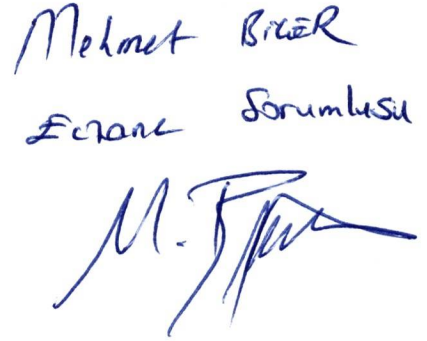 Mehmet BİÇER
Eczane Sorumlusu
M. B